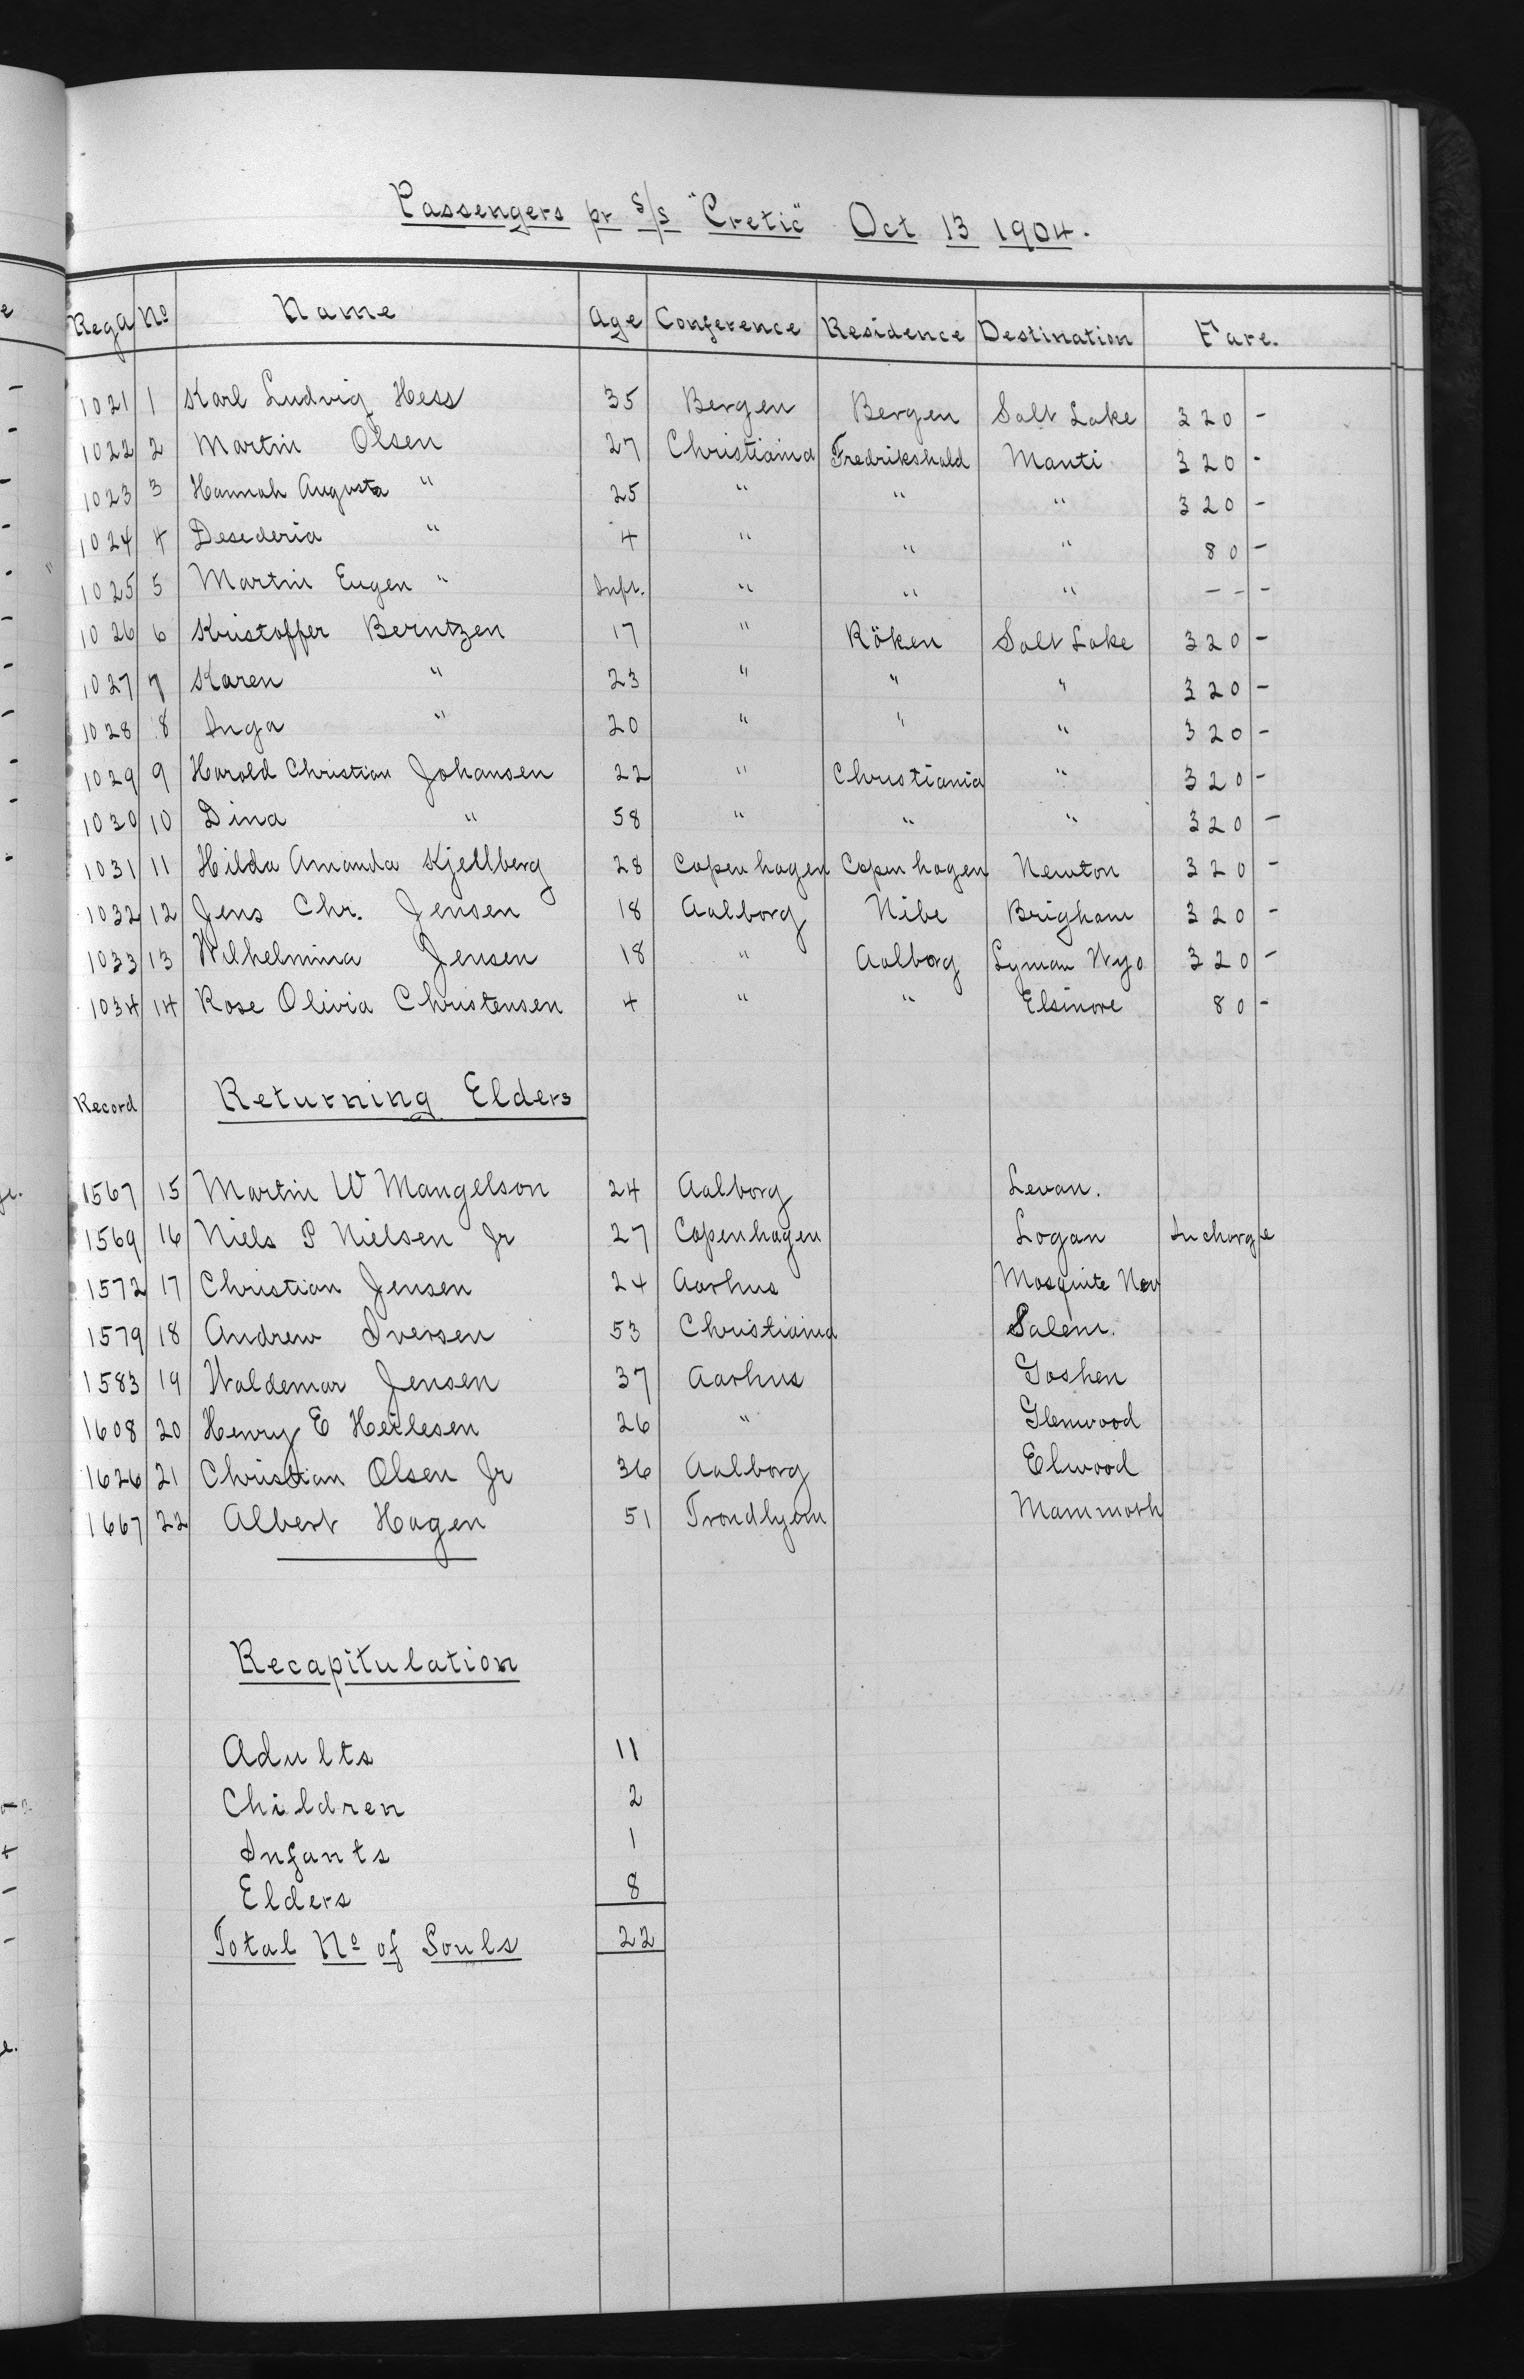 Passengers pr S/S "Cretic" Oct 13 1904.
Rega No Name Age Conference Residence Destination Fare.
1021 1 Karl Ludvig Hess 35 Bergen Bergen Salt Lake 320 -
1022 2 Martin Olsen 27 Christiania Fredrikshald Manti 320 -
1023 3 Hannah Augusta " 25 " " " 320 -
1024 4 Desederia " 4 " " " 80 -
1025 5 Martin Eugen " Inft. " " " - - -
1026 6 Kristoffer Berntzen 17 " Röken Salt Lake 320 -
1027 7 Karen " 23 " " " 320 -
1028 8 Inga " 20 " " " 320 -
1029 9 Harold Christian Johansen 22 " Christiania " 320 -
1030 10 Dina " 58 " " " 320 -
1031 11 Hilda Amanda Kjellberg 28 Copenhagen Copenhagen Newton 320 -
1032 12 Jens Chr. Jensen 18 Aalborg Nibe Brigham 320 -
1033 13 Wilhelmina Jensen 18 " Aalborg Lyman Wyo 320 -
1034 14 Rose Olivia Christensen 4 " " Elsinore 80 -
Record Returning Elders
1567 15 Martin W Mangelson 24 Aalborg Levan.
1569 16 Niels P Nielsen Jr 27 Copenhagen Logan In charge
1572 17 Christian Jensen 24 Aarhus Mosquite Nev
1579 18 Andrew Iversen 53 Christiania Salem.
1583 19 Waldemar Jensen 37 Aarhus Goshen
1608 20 Henry E Heilesen 26 " Glenwood
1626 21 Christian Olsen Jr 36 Aalborg Elwood
1667 22 Albert Hagen 51 Trondhjem Mammoth
Recapitulation
Adults 11
Children 2
Infants 1
Elders 8
Total No of Souls 22